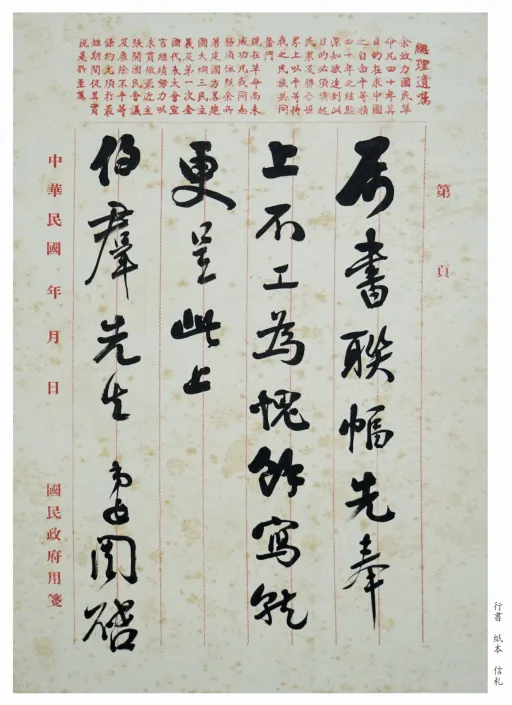 總理遺囑
余致力國民革
命凡四十年其
目的在求中國
之自由平等積
四十年之經驗
深知欲達到此
目的必須喚起
民眾及聯合世
界上以平等待
我之民族共同
奮鬥
現在革命尚未
成功凡我同志
務須依照余所
著建國方畧建
國大綱三民主
義及第一次全
國代表大會宣
言繼續努力以
求貫徹最近主
張開國民會議
及廢除不平等
條約尤須於最
短期間促其實
現是所至囑
第 頁
屬書聯幅先奉
上不工為愧餘寫就
更呈此上
伯羣先生 弟延闓啟
中華民國 年 月 日 國民政府用箋
行書 紙本 信札